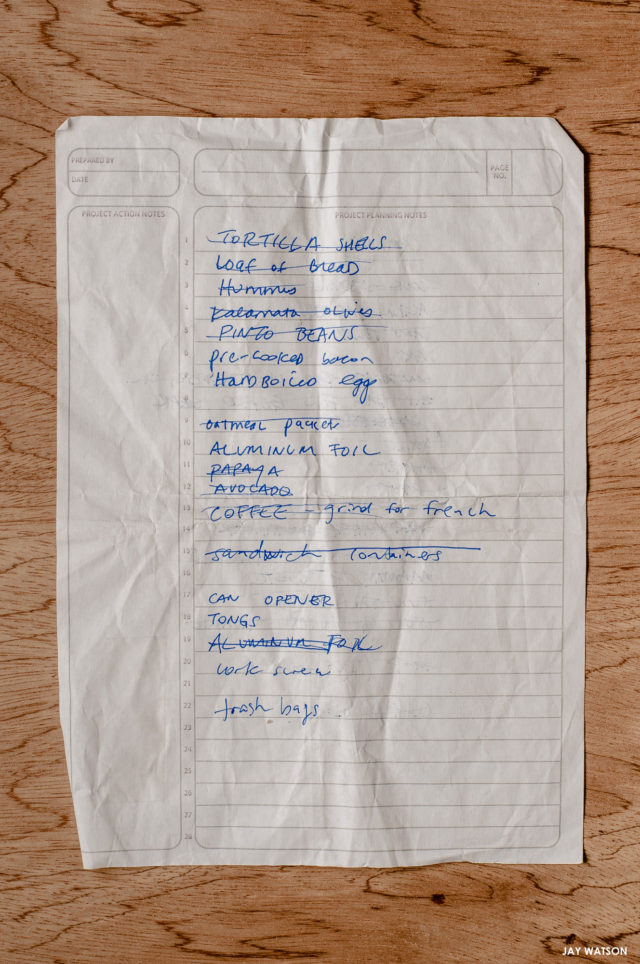 PREPARED BY
DATE
PAGE NO.
PROJECT ACTION NOTES
PROJECT PLANNING NOTES
1 TORTILLA SHELLS
2 Loaf of bread
3 Hummus
4 Kalamata olives
5 PINTO BEANS
6 pre-cooked bacon
7 HARDBOILED eggs
8
9 oatmeal packet
10 ALUMINUM FOIL
11 PAPAYA
12 AVOCADO
13 COFFEE - grind for french
14
15 sandwich containers
16
17 CAN OPENER
18 TONGS
19 ALUMINUM FOIL
20 cork screw
21
22 trash bags
23
24
25
26
27
28
JAY WATSON